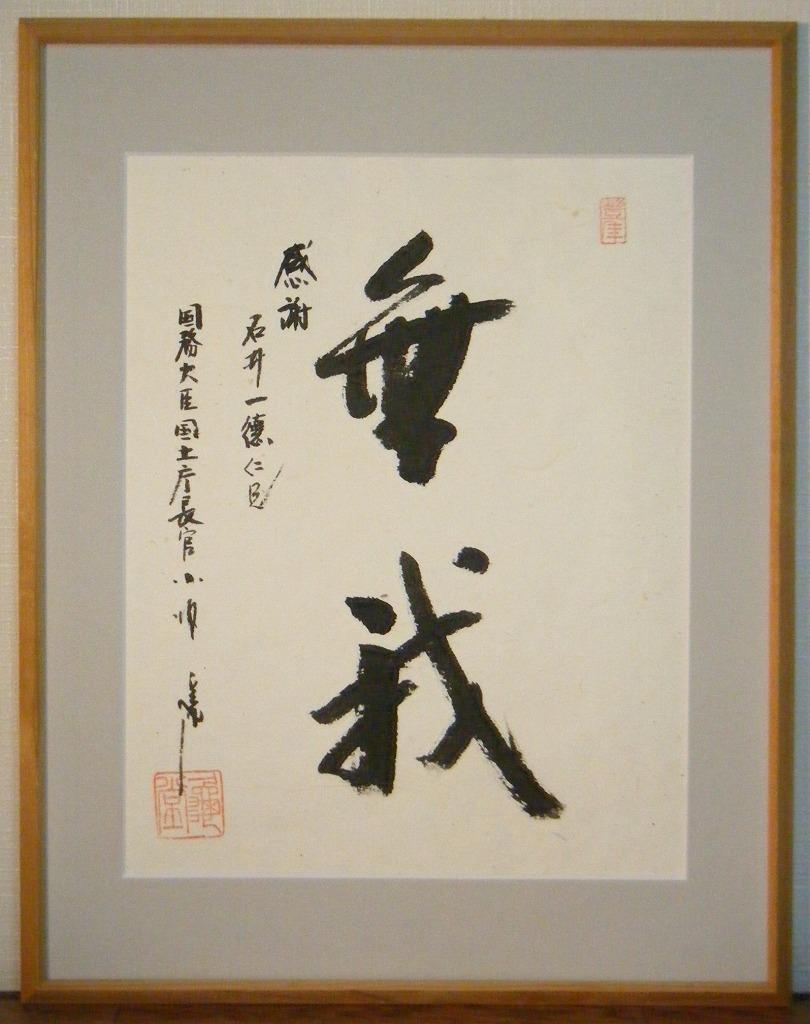 無我
感謝
石井一徳仁兄
国務大臣国土庁長官 小沢 潔